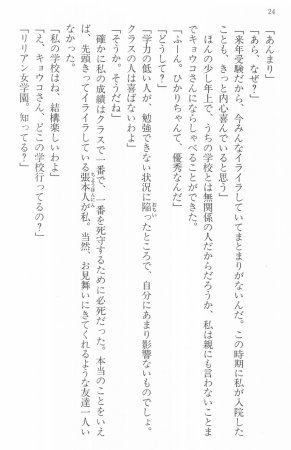 24
「あんまり」
「あら、なぜ？」
「来年受験だから、今みんなイライラしていてまとまりがないんだ。この時期に私が入院した
ことも、きっと内心喜んでいると思う」
ほんの少し年上で、うちの学校とは無関係の人だからだろうか、私は親にも言わないことま
でキョウコさんにならしゃべることができた。
「ふーん。ひかりちゃんて、優秀なんだ」
「どうして？」
「学力の低い人が、勉強できない状況に陥ったところで、自分にあまり影響ないものでしょ。
クラスの人は喜ばないわよ」
「そうか。そうだね」
確かに私の成績はクラスで一番で、一番を死守するために必死だった。本当のことをいえ
ば、先頭きってイライラしている張本人が私。当然、お見舞いにきてくれるような友達一人い
なかった。
「私の学校はね、結構楽しいわよ」
「え、キョウコさん、どこの学校行ってるの？」
「リリアン女学園。知ってる？」